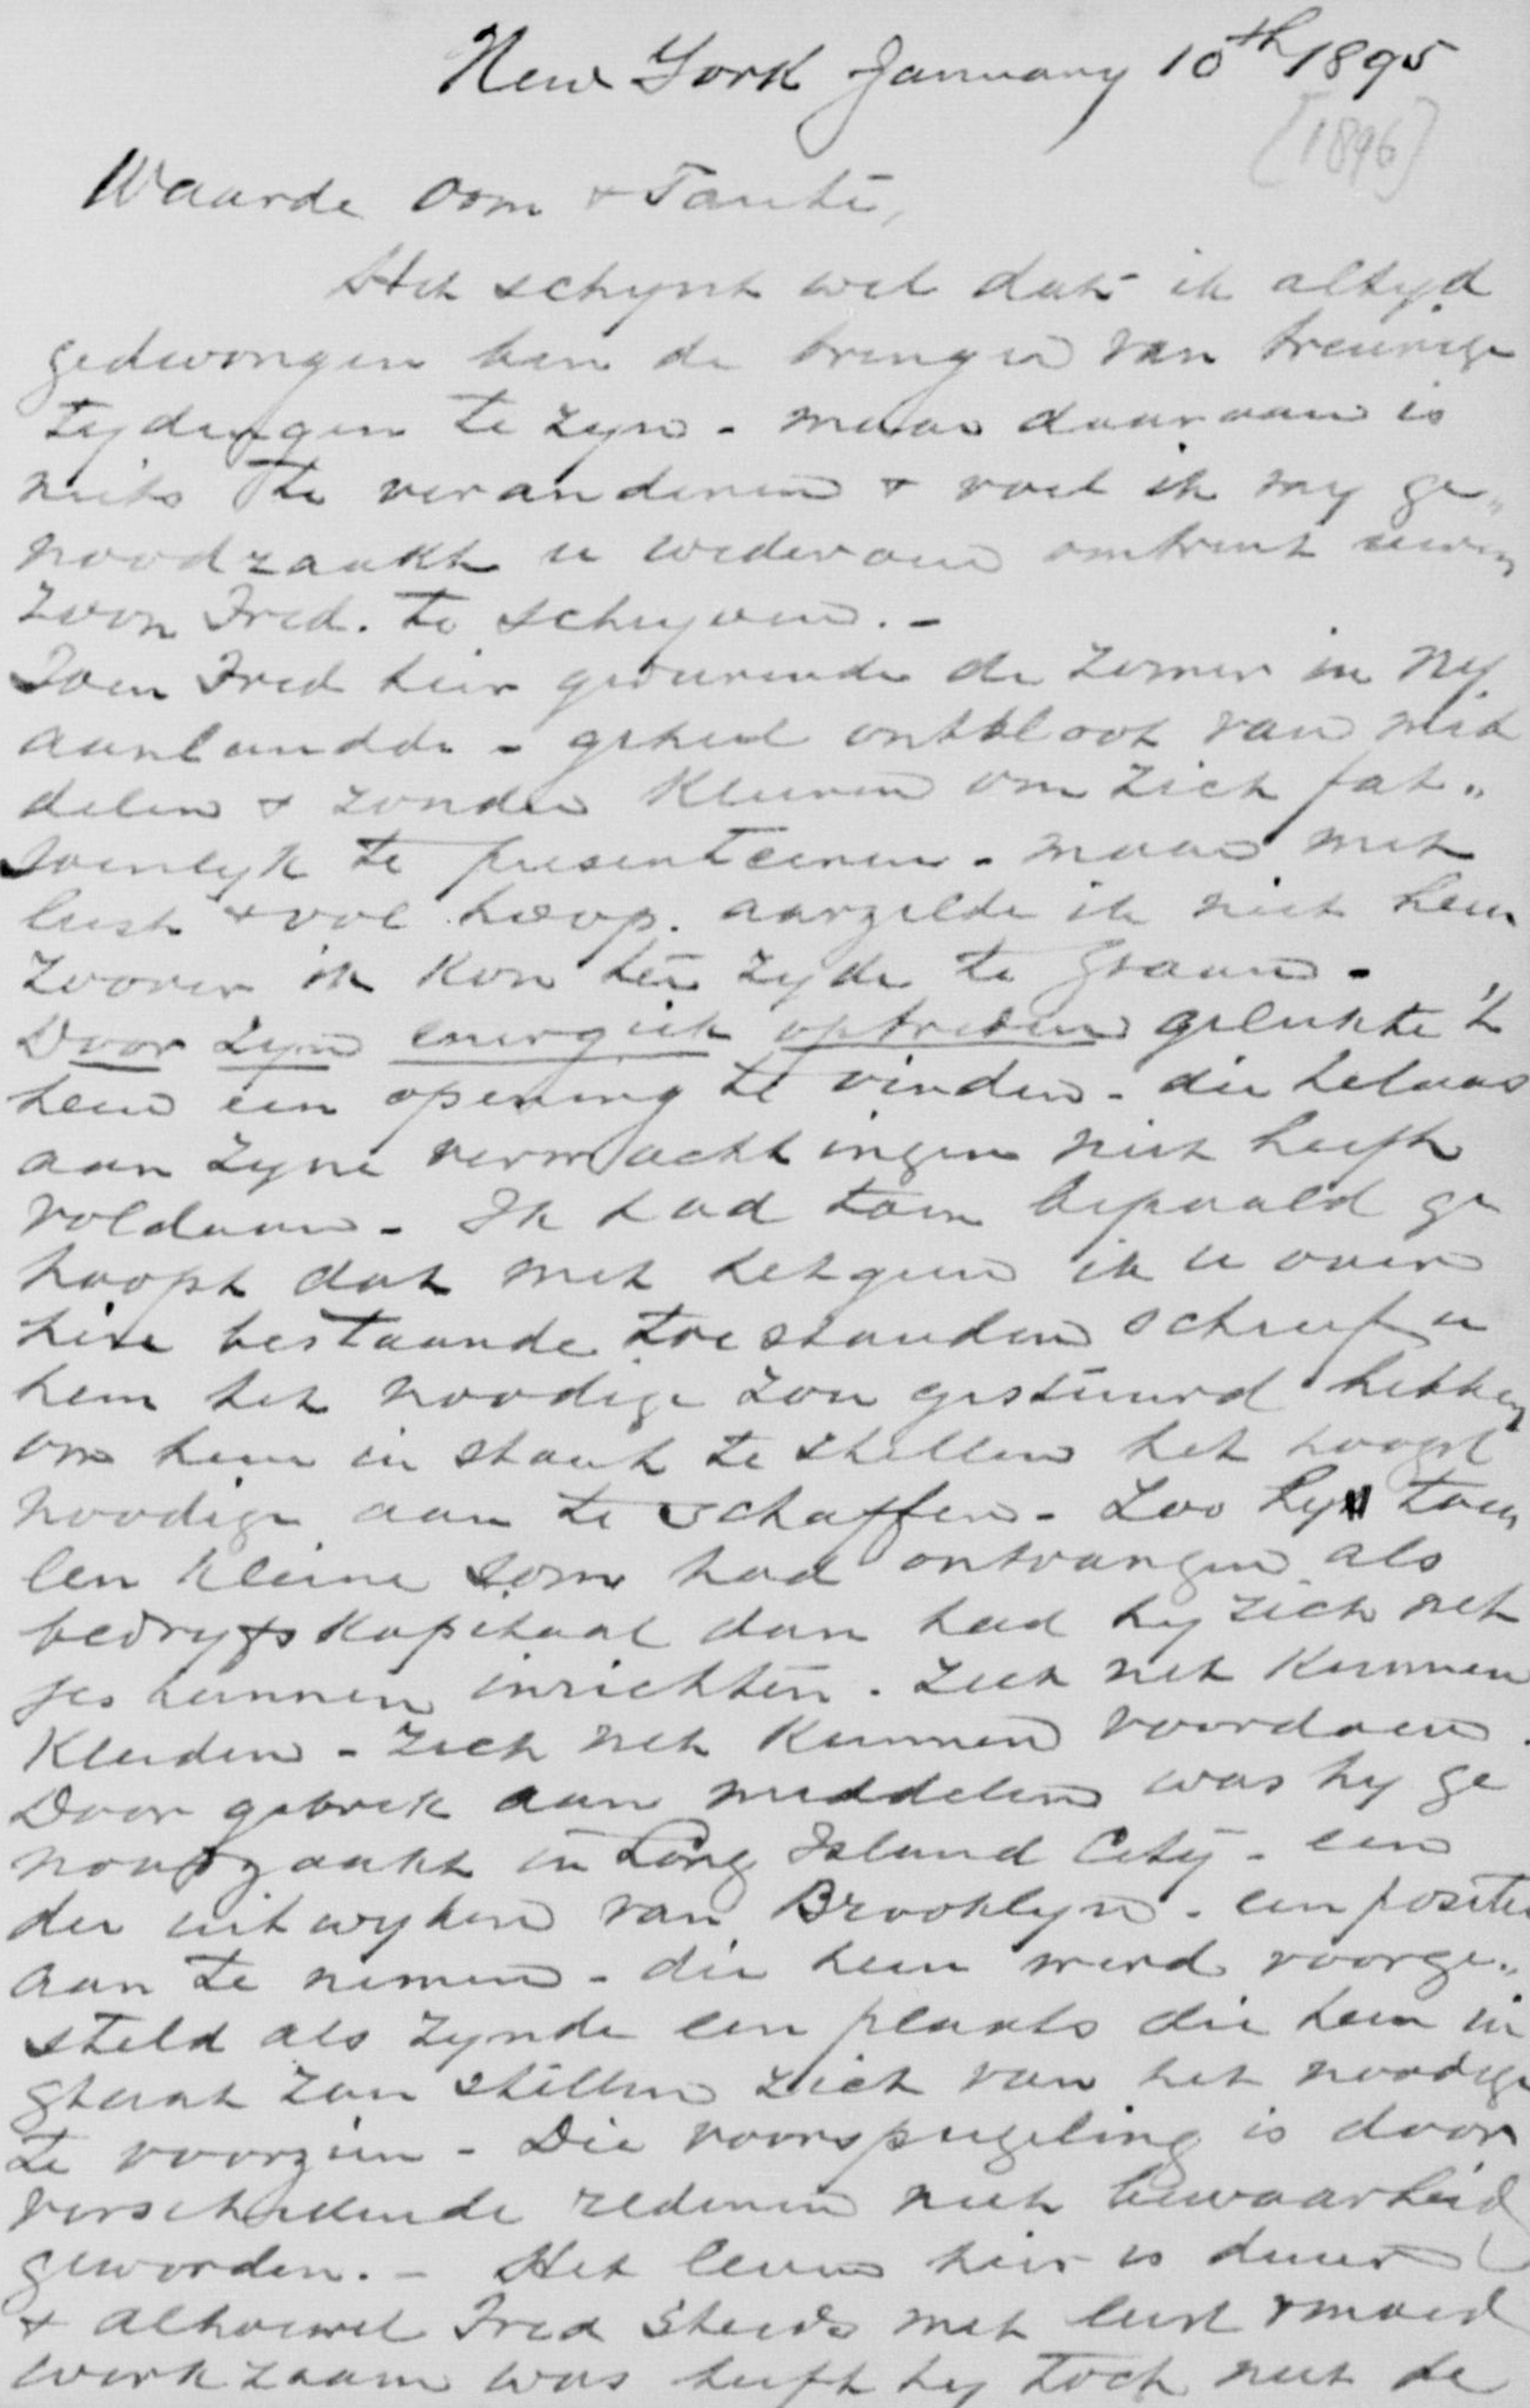 New York January 10th 1895
[1896]
Waarde Oom & Tante,
Het schynt wel dat ik altyd
gedwongen ben de brenger van treurige
tydingen te zyn - maar daaraan is
niets te veranderen & voel ik my ge„
noodzaakt u wederom omtrent uwen
zoon Fred. te schryven. -
Toen Fred hier gedurende de zomer in NY
aanlandde - geheel ontbloot van mid
delen & zonder kleeren om zich fat„
soenlyk te presenteeren - maar met
lust & vol hoop. aarzelde ik niet hem
zoover ik kon ter zyde te staan -
Door zyn energiek optreden gelukte 't
hem een opening te vinden - die helaas
aan zyne verwachtingen niet heeft
voldaan - Ik had toen bepaald ge
hoopt dat met hetgeen ik u over
hier bestaande toestanden schreef u
hem het noodige zou gestuurd hebben
om hem in staat te stellen het hoogst
noodige aan te schaffen - Zoo hy toen
een kleine som had ontvangen als
bedryfskapitaal dan had hy zich net
jes kunnen inrichten. Zich net kunnen
kleeden - zich net kunnen voordoen.
Door gebrek aan middelen was hy ge
noodzaakt in Long Island City - een
der uitwyken van Brooklyn - een positie
aan te nemen - die hem werd voorge„
steld als zynde een plaats die hem in
staat zou stellen zich van het noodige
te voorzien - Die voorspiegeling is door
verscheidende redenen niet bewaarheid
geworden. - Het leven hier is duur
& alhoewel Fred steeds met lust & moed
werkzaam was heeft hy toch niet de